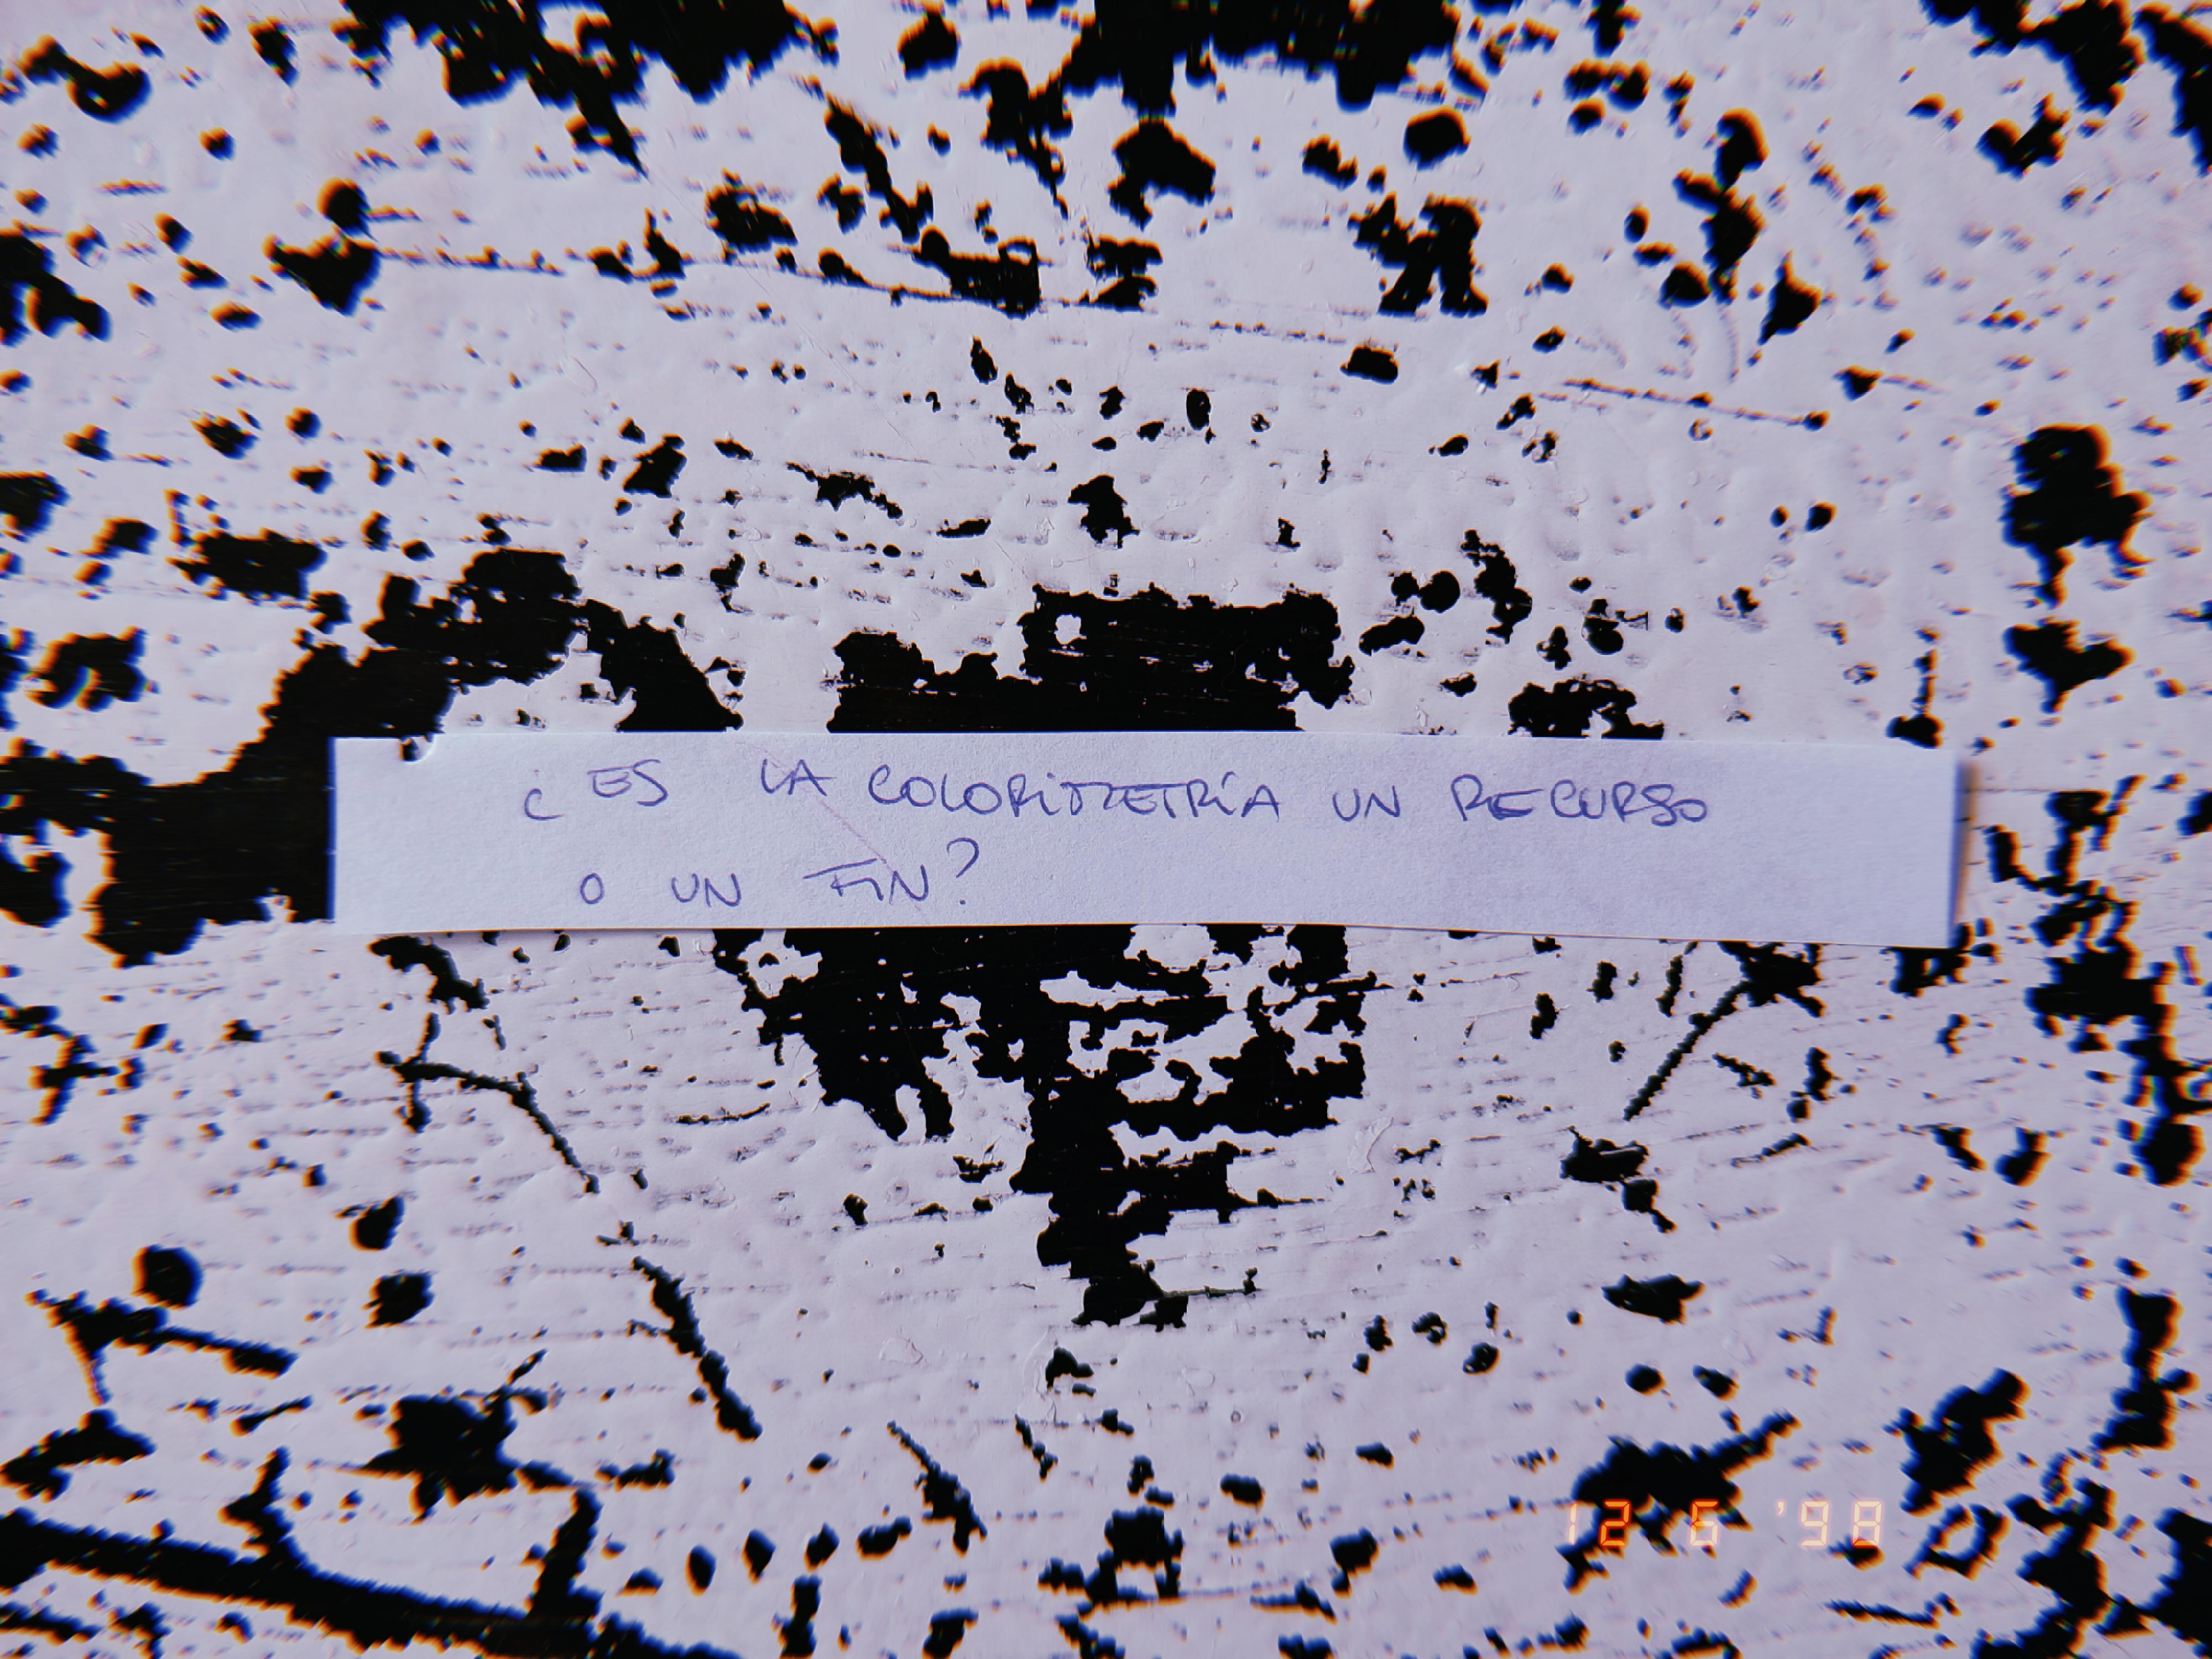 ¿ES LA COLORIMETRÍA UN RECURSO
O UN FIN?
12 6 '98